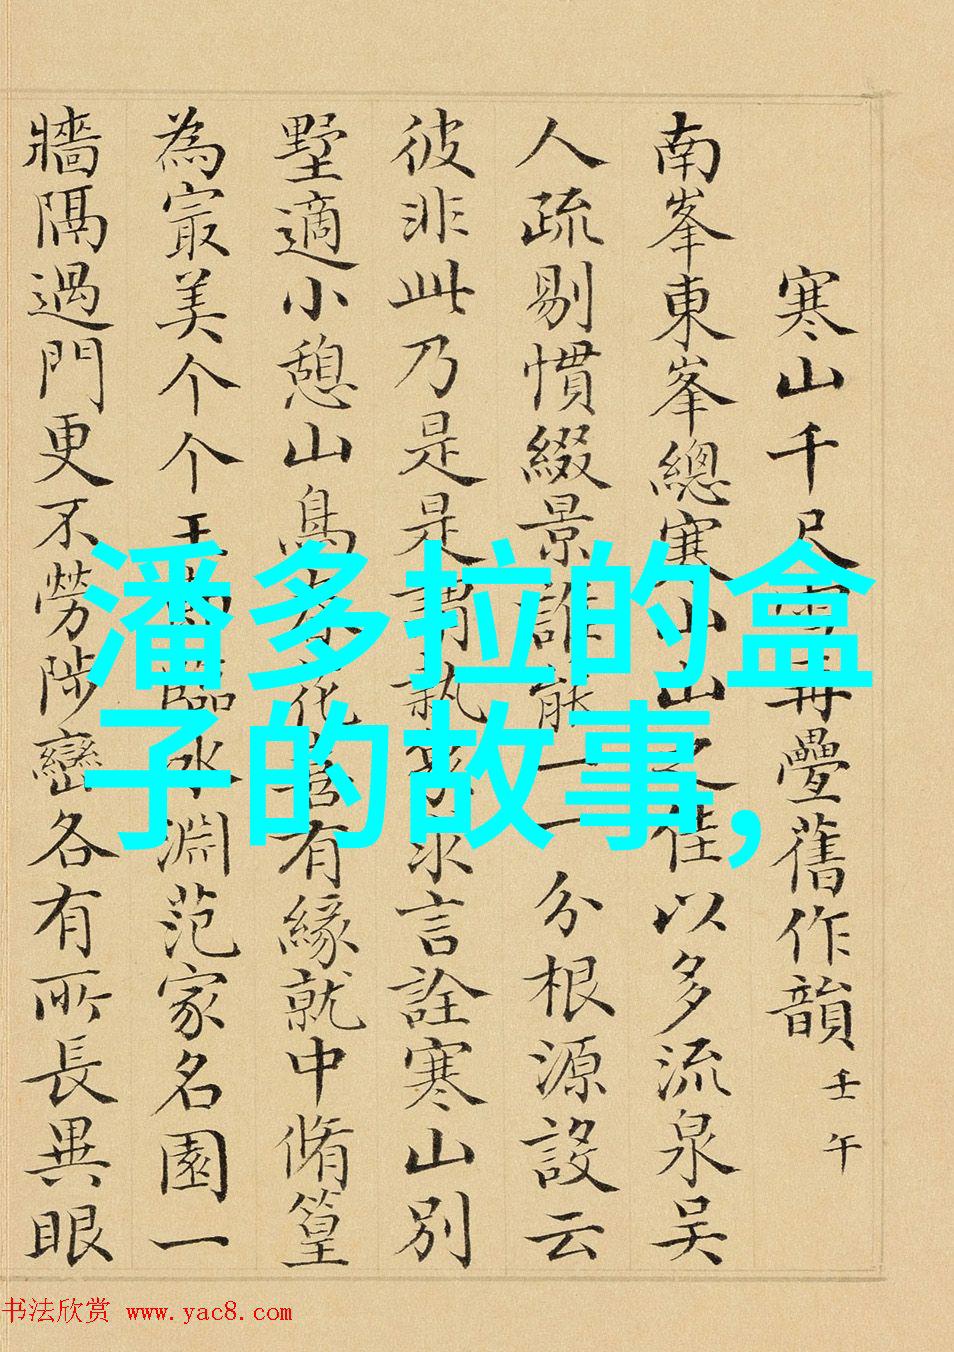 寒山千尺雪再疊舊作韻 壬午
南峯東峯總寒山山之佳以多流泉吴
人疏剔慣綴景詎能一一分根源設云
彼非此乃是是謂執象求言詮寒山別
墅適小憩山鳥花喜有緣就中脩篁
為冣美个个玉臨水淵范家名園一
牆隔過門更不勞陟巒各有所長異眼
潘多拉的盒
子的故事,
书法欣赏 www.yac8.com